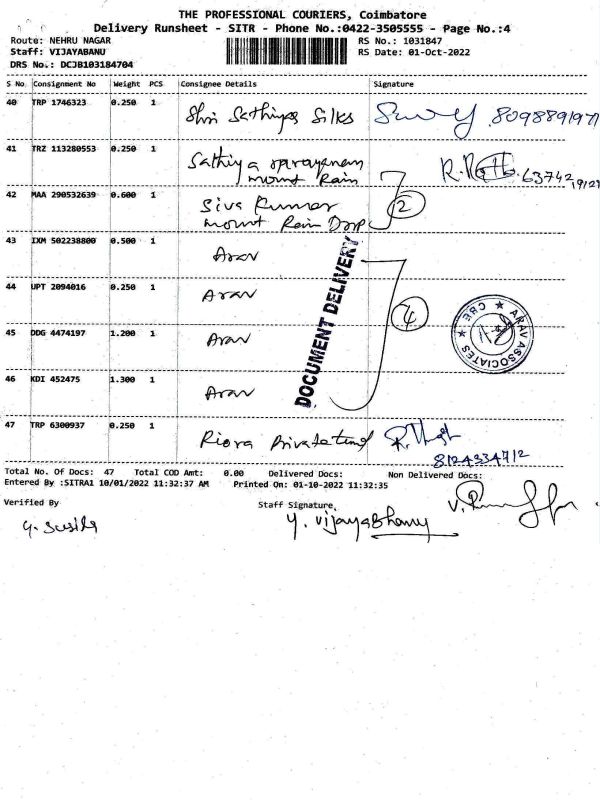 THE PROFESSIONAL COURIERS, Coimbatore
Delivery Runsheet - SITR - Phone No.:0422-3505555 - Page No.:4
Route: NEHRU NAGAR RS No.: 1031847
Staff: VIJAYABANU RS Date: 01-Oct-2022
DRS No.: DCJB103184704
S No. Consignment No Weight PCS Consignee Details Signature
40 TRP 1746323 0.250 1 Shri Sathiyas Silks
41 TRZ 113280553 0.250 1 Sathiya narayanan
mount Rain
42 MAA 290532639 0.600 1 Siva Kumar 2
mount Rain
43 IXM 502238800 0.500 1 Arav
DOCUMENT DELIVERY
44 UPT 2094016 0.250 1 Arav 4
ARAV ASSOCIATES ★ CBE ★
45 DDG 4474197 1.200 1 Arav
46 KDI 452475 1.300 1 Arav
47 TRP 6300937 0.250 1 Riora Private
8124334712
Total No. Of Docs: 47 Total COD Amt: 0.00 Delivered Docs: Non Delivered Docs:
Entered By :SITRA1 10/01/2022 11:32:37 AM Printed On: 01-10-2022 11:32:35
Verified By Staff Signature
Y. Vijayabhanu